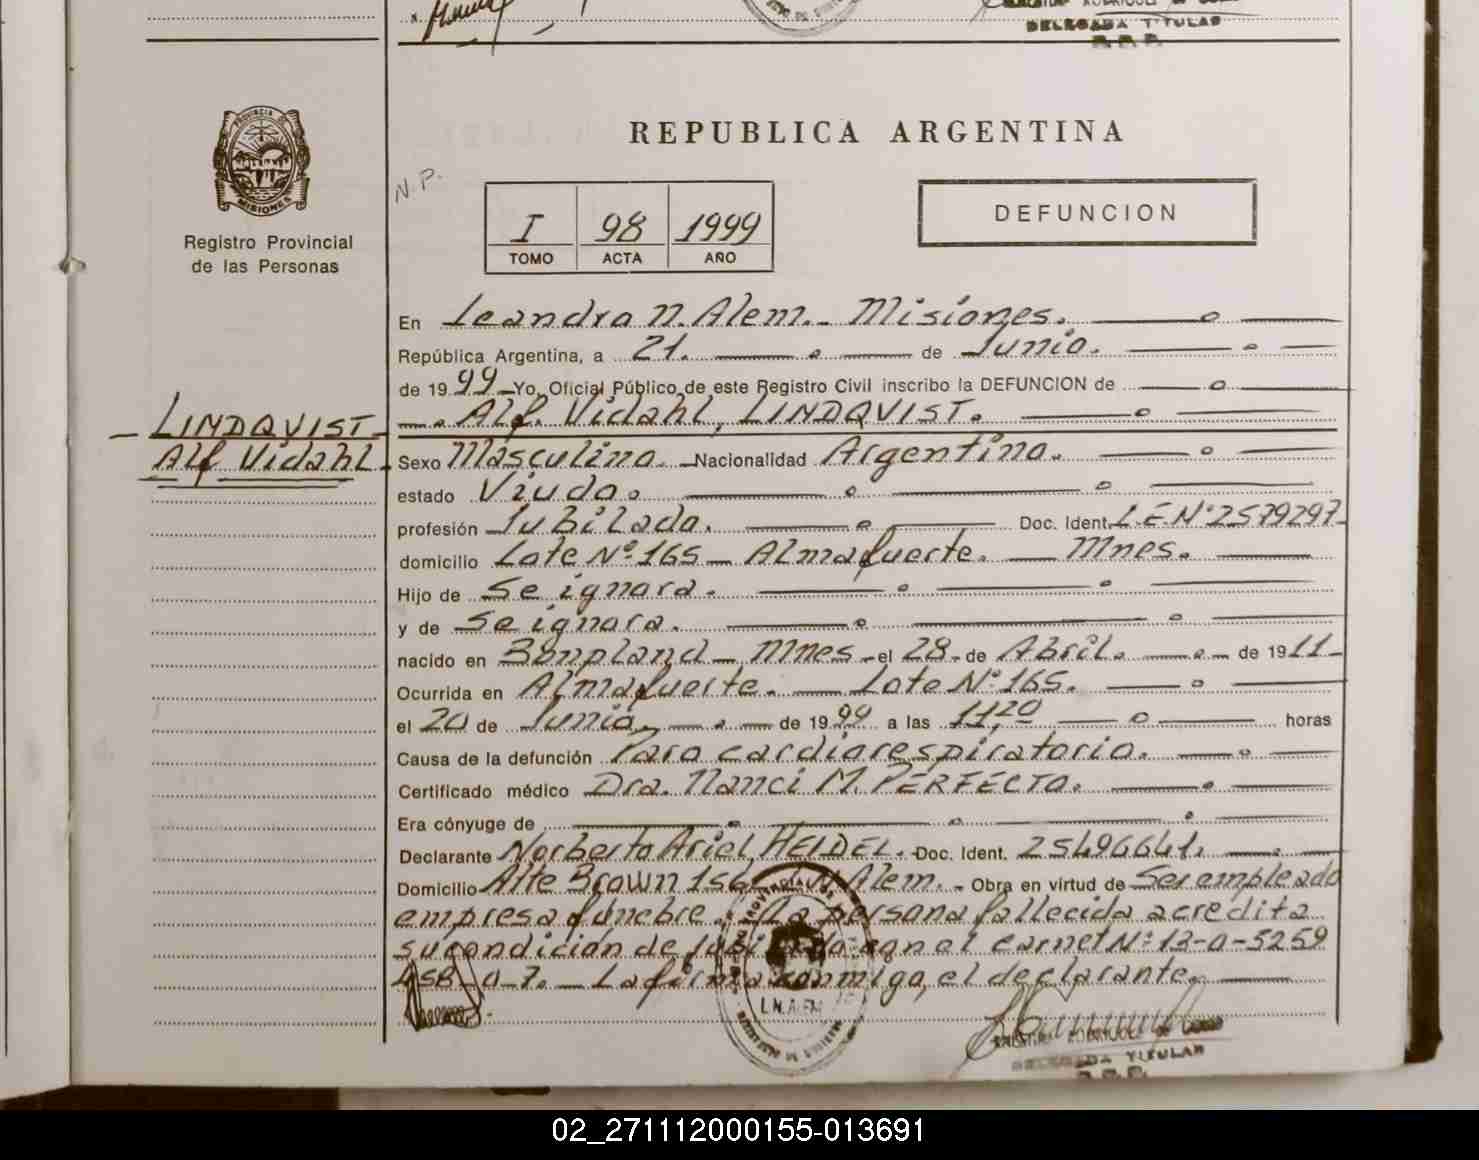 DELEGADA TITULAR
R.P.P.
PROVINCIA DE
MISIONES
Registro Provincial
de las Personas
REPUBLICA ARGENTINA
N.P.
I 98 1999
TOMO ACTA AÑO
DEFUNCION
En Leandro N. Alem.- Misiones.
República Argentina, a 21. de Junio.
de 1999 Yo, Oficial Público de este Registro Civil inscribo la DEFUNCION de
Alf. Vidahl, LINDQVIST.
LINDQVIST
Alf Vidahl
Sexo Masculino. Nacionalidad Argentino.
estado Viudo.
profesión Jubilado. Doc. Ident. L.E.Nº2579297
domicilio Lote Nº 165 - Almafuerte. - Mnes.
Hijo de Se ignora.
y de Se ignora.
nacido en Bonpland - Mnes - el 28 de Abril. de 1911
Ocurrida en Almafuerte. - Lote Nº 165.
el 20 de Junio, de 1999 a las 11,20 horas
Causa de la defunción Paro cardiorespiratorio.
Certificado médico Dra. Nanci M. PERFECTO.
Era cónyuge de
Declarante Norberto Ariel, HEIDEL. Doc. Ident. 25496641.
Domicilio Alte Brown L.N. Alem. - Obra en virtud de Ser empleado
empresa fúnebre. - La persona fallecida acredita
su condición de jubilado con el carnet Nº 13-0-5259
- 0-7. - La firma conmigo, el declarante.
L.N.ALEM
DELEGADA TITULAR
R.P.P.
02_271112000155-013691